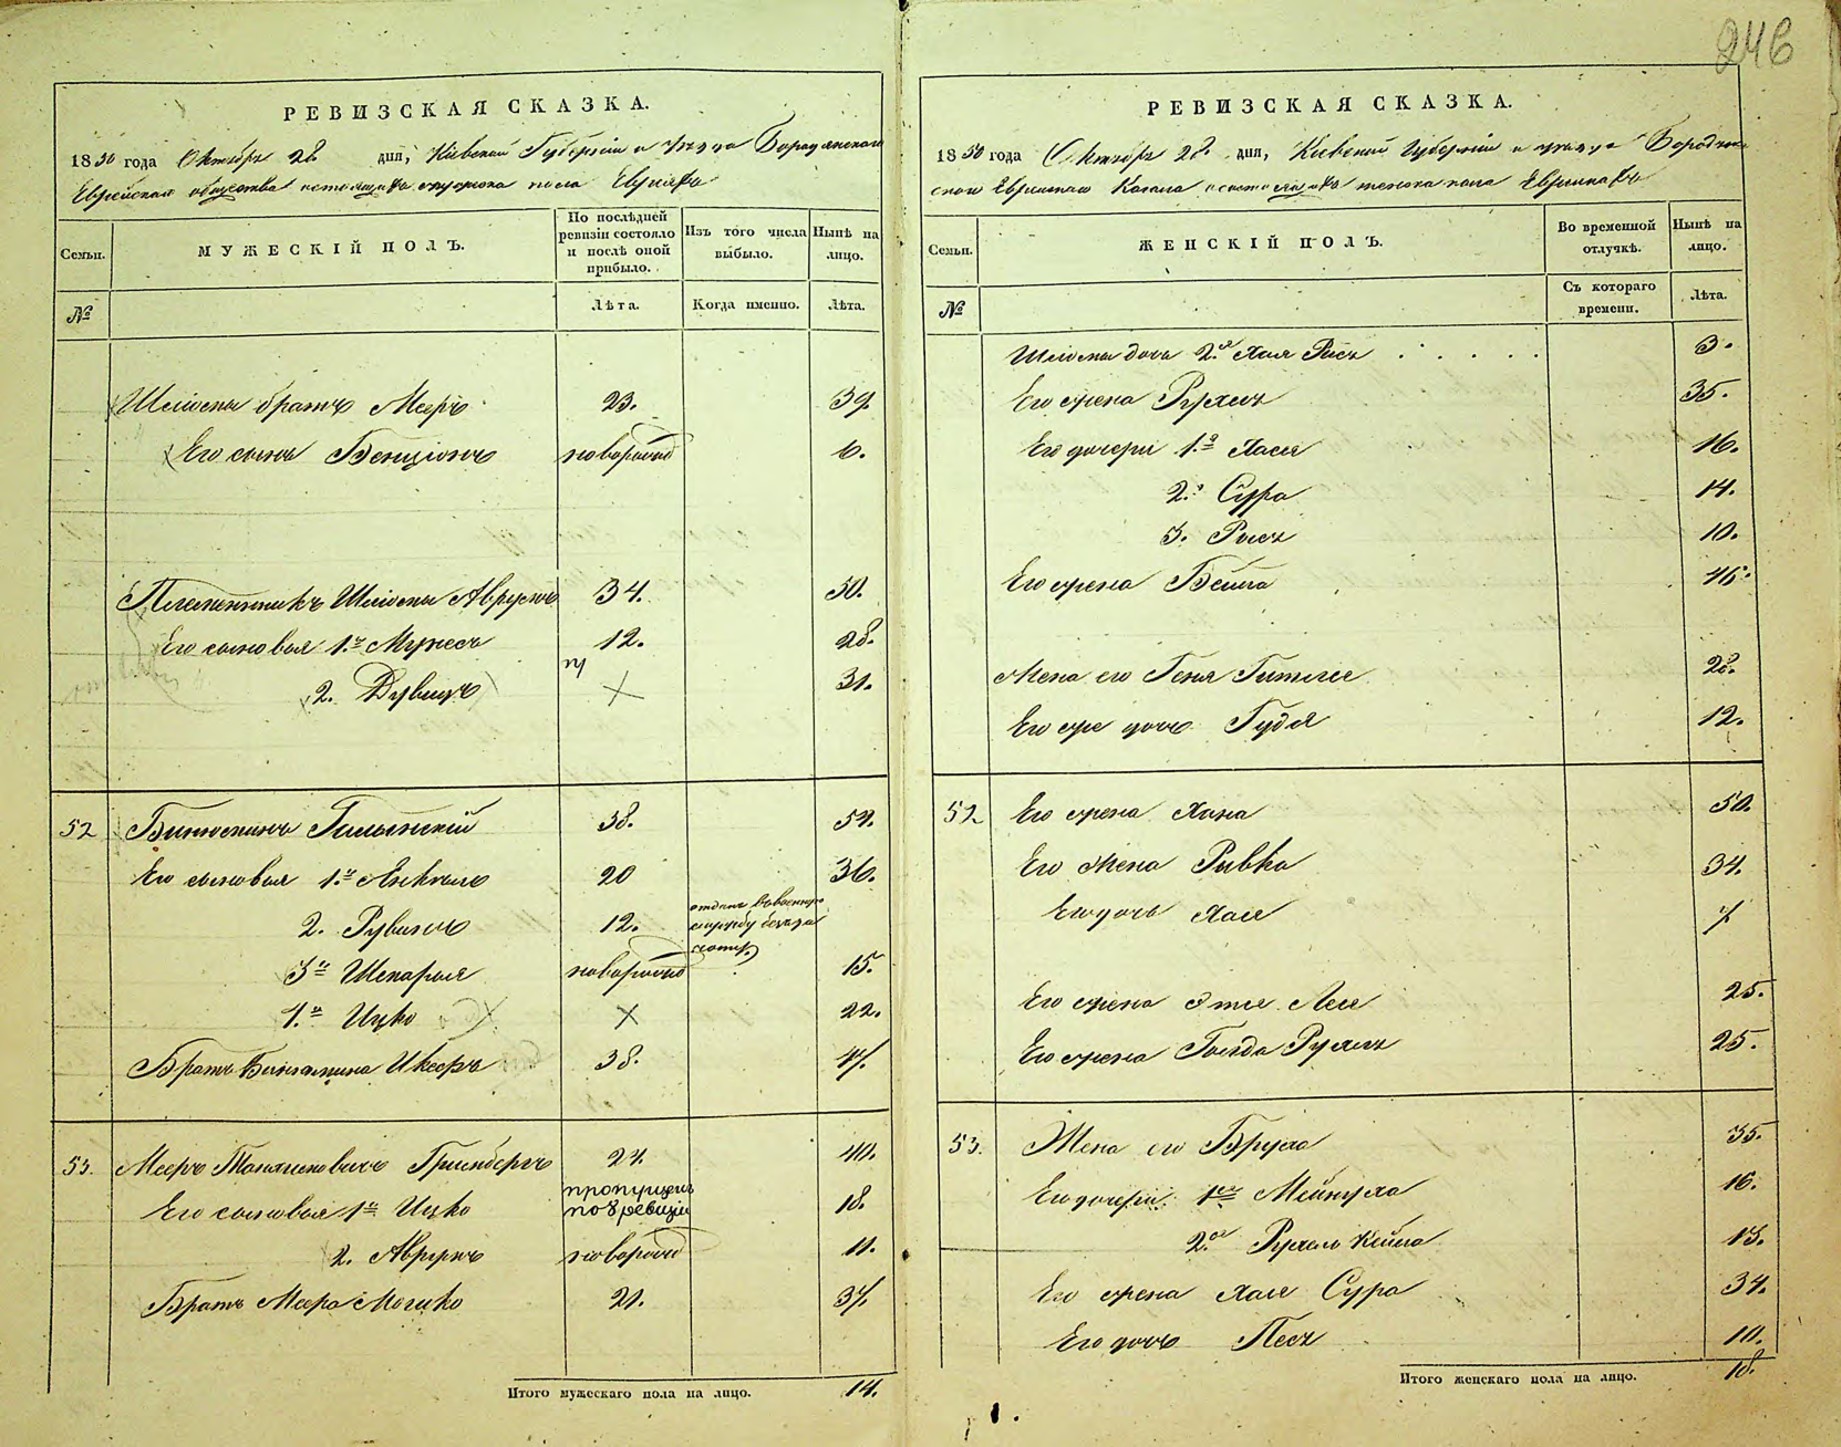 246
РЕВИЗСКАЯ СКАЗКА.
1850 года Октября 28 дня, Кіевской Губерніи и уѣзда Бородянскаго
Еврейскаго общества о состоящихъ мужеска пола Евреяхъ
Семьи.
МУЖЕСКІЙ ПОЛЪ.
По послѣдней ревизіи состояло и послѣ оной прибыло.
Изъ того числа выбыло.
Нынѣ на лицо.
№
Лѣта.
Когда именно.
Лѣта.
Шліомы братъ Мееръ 23. 39.
Его сынъ Бенціонъ новорожд 6.
Племянникъ Шліомы Аврумъ 34. 50.
Его сыновья 1й Мунесъ 12. 28.
2. Дувидъ 31.
52 Биниоминъ 38. 54.
Его сыновья 1й Янкель 20 36.
2. Рувинъ 12. отданъ въ военную службу
3й Шекарья новорожд 15.
4й Ицко 22.
Братъ Биниамина 38. 47.
53. Мееръ Гринбергъ 24. 40.
Его сыновья 1й Ицко пропущенъ по 8 ревизіи 18.
2. Аврумъ новорожд 11.
Братъ Меера Мошко 21. 37.
Итого мужескаго пола на лицо. 14.
РЕВИЗСКАЯ СКАЗКА.
1850 года Октября 28 дня, Кіевской Губерніи и уѣзда Бородян-
скаго Еврейскаго Кагала о состоящихъ женска пола Еврейкахъ
Семьи.
ЖЕНСКІЙ ПОЛЪ.
Во временной отлучкѣ.
Нынѣ на лицо.
№
Съ котораго времени.
Лѣта.
Шліомы дочь 2я Хая Рися 3.
Его жена Рухля 35.
Его дочери 1я Хася 16.
2я Сура 14.
3. Рися 10.
Его жена Бейла 46.
Жена его Геня Гитля 28.
Его же дочь Гудя 12.
52 Его жена Хана 50.
Его жена Ривка 34.
Его дочь Хая 7
Его жена Этля Лея 25.
Его жена Голда Рухля 25.
53. Жена его Бруха 35.
Его дочери 1я Мейнуха 16.
2я Рухель Кейла 13.
Его жена Хая Сура 34.
Его дочь Песя 10.
Итого женскаго пола на лицо. 18.